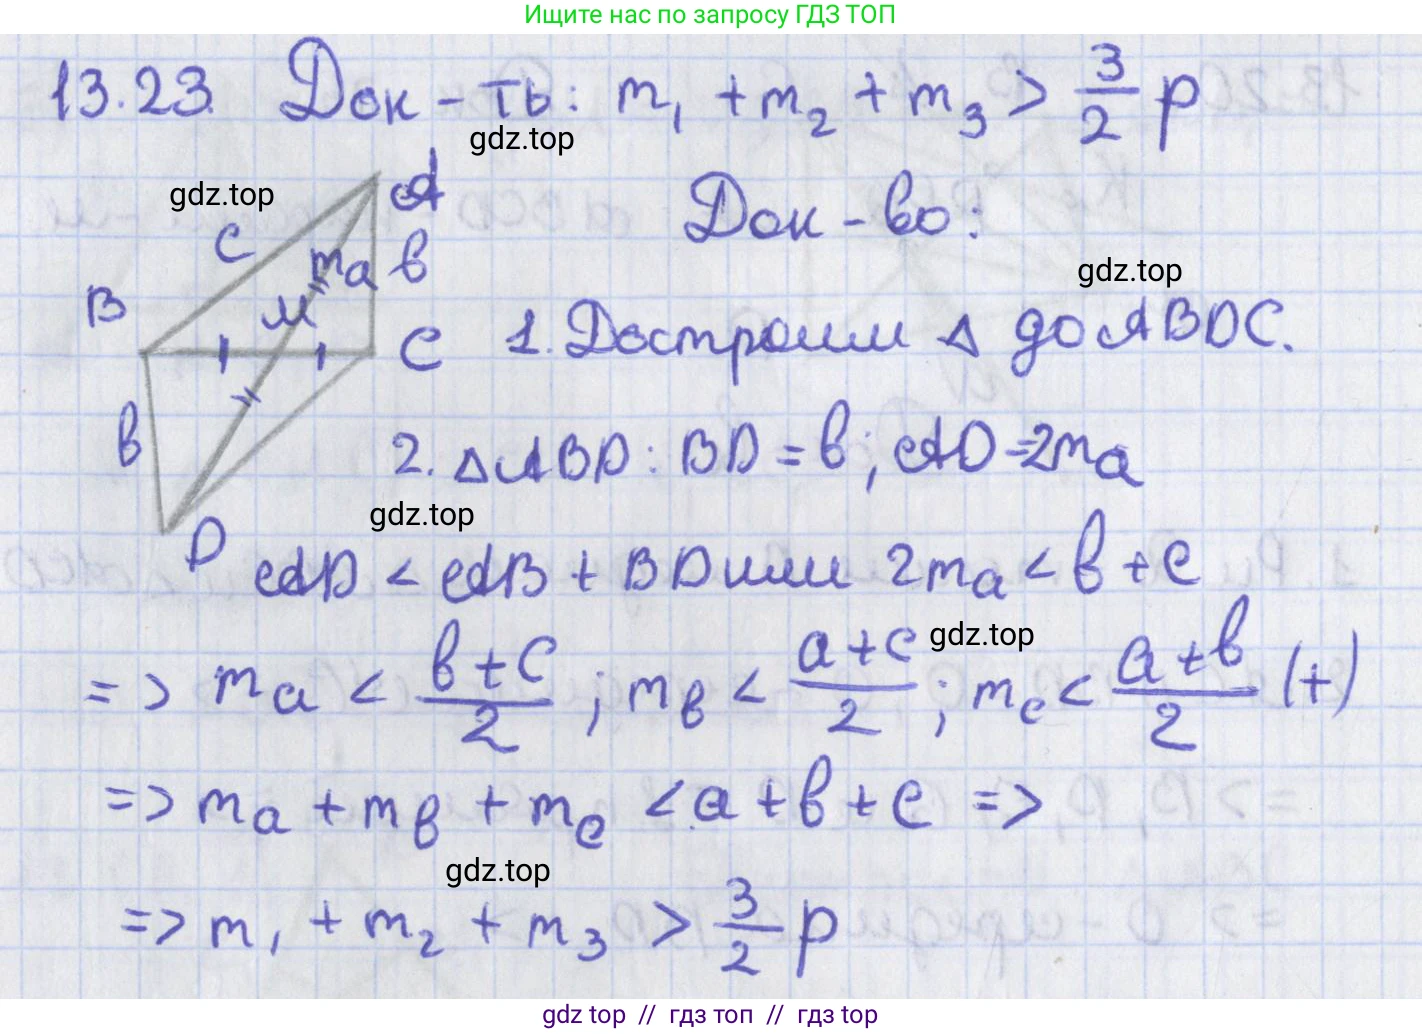 Ищите нас по запросу ГДЗ ТОП
13.23. Док-ть: m₁ + m₂ + m₃ > 3/2 p
gdz.top
gdz.top
A
c
mₐ
в
Док-во:
gdz.top
B
M
C
1. Достроим △ до ABDC.
в
2. △ABD: BD = в; AD = 2mₐ
gdz.top
D
AD < AB + BD или 2mₐ < в + c
gdz.top
=> mₐ < (в + c)/2 ; mв < (a + c)/2 ; mc < (a + в)/2 (+)
=> mₐ + mв + mc < a + в + c =>
gdz.top
=> m₁ + m₂ + m₃ > 3/2 p
gdz top // гдз топ // гдз top